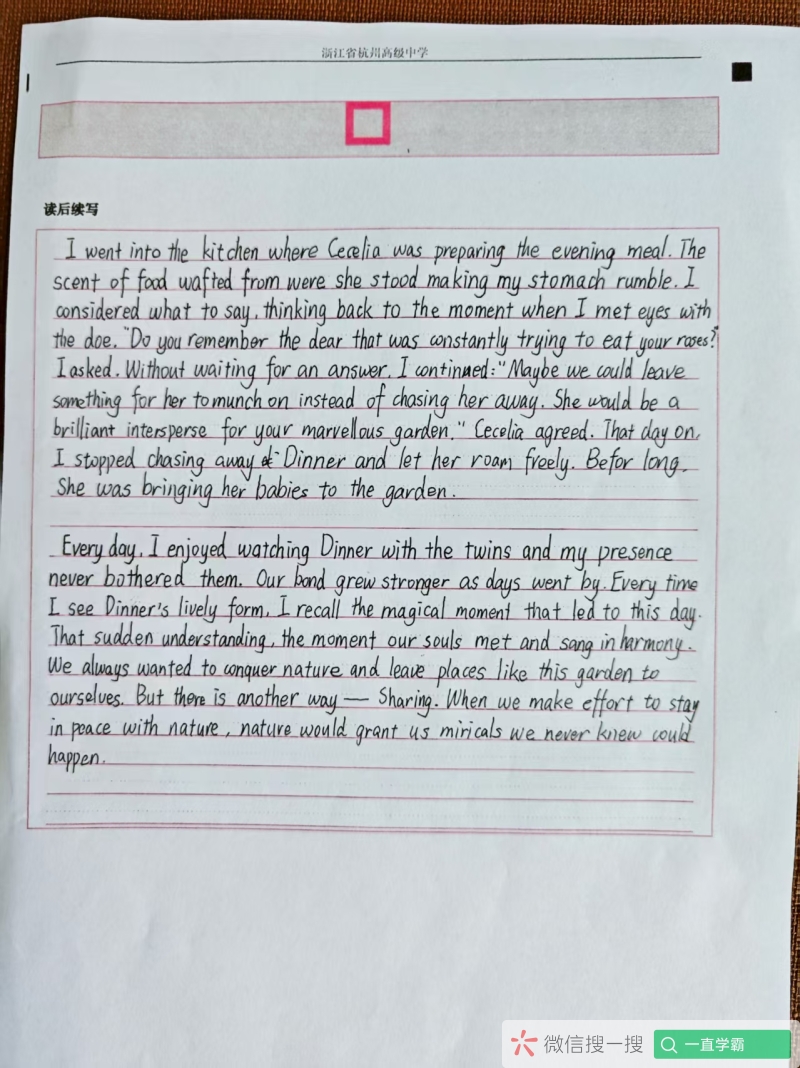 浙江省杭州高级中学
读后续写
I went into the kitchen where Cecelia was preparing the evening meal. The
scent of food wafted from were she stood making my stomach rumble. I
considered what to say, thinking back to the moment when I met eyes with
the doe. "Do you remember the dear that was constantly trying to eat your roses?"
I asked. Without waiting for an answer, I continued: "Maybe we could leave
something for her to munch on instead of chasing her away. She would be a
brilliant intersperse for your marvellous garden." Cecelia agreed. That day on,
I stopped chasing away Dinner and let her roam freely. Befor long,
She was bringing her babies to the garden.
Every day, I enjoyed watching Dinner with the twins and my presence
never bothered them. Our bond grew stronger as days went by. Every time
I see Dinner's lively form, I recall the magical moment that led to this day.
That sudden understanding, the moment our souls met and sang in harmony.
We always wanted to conquer nature and leave places like this garden to
ourselves. But there is another way — Sharing. When we make effort to stay
in peace with nature, nature would grant us miricals we never knew could
happen.
微信搜一搜
一直学霸